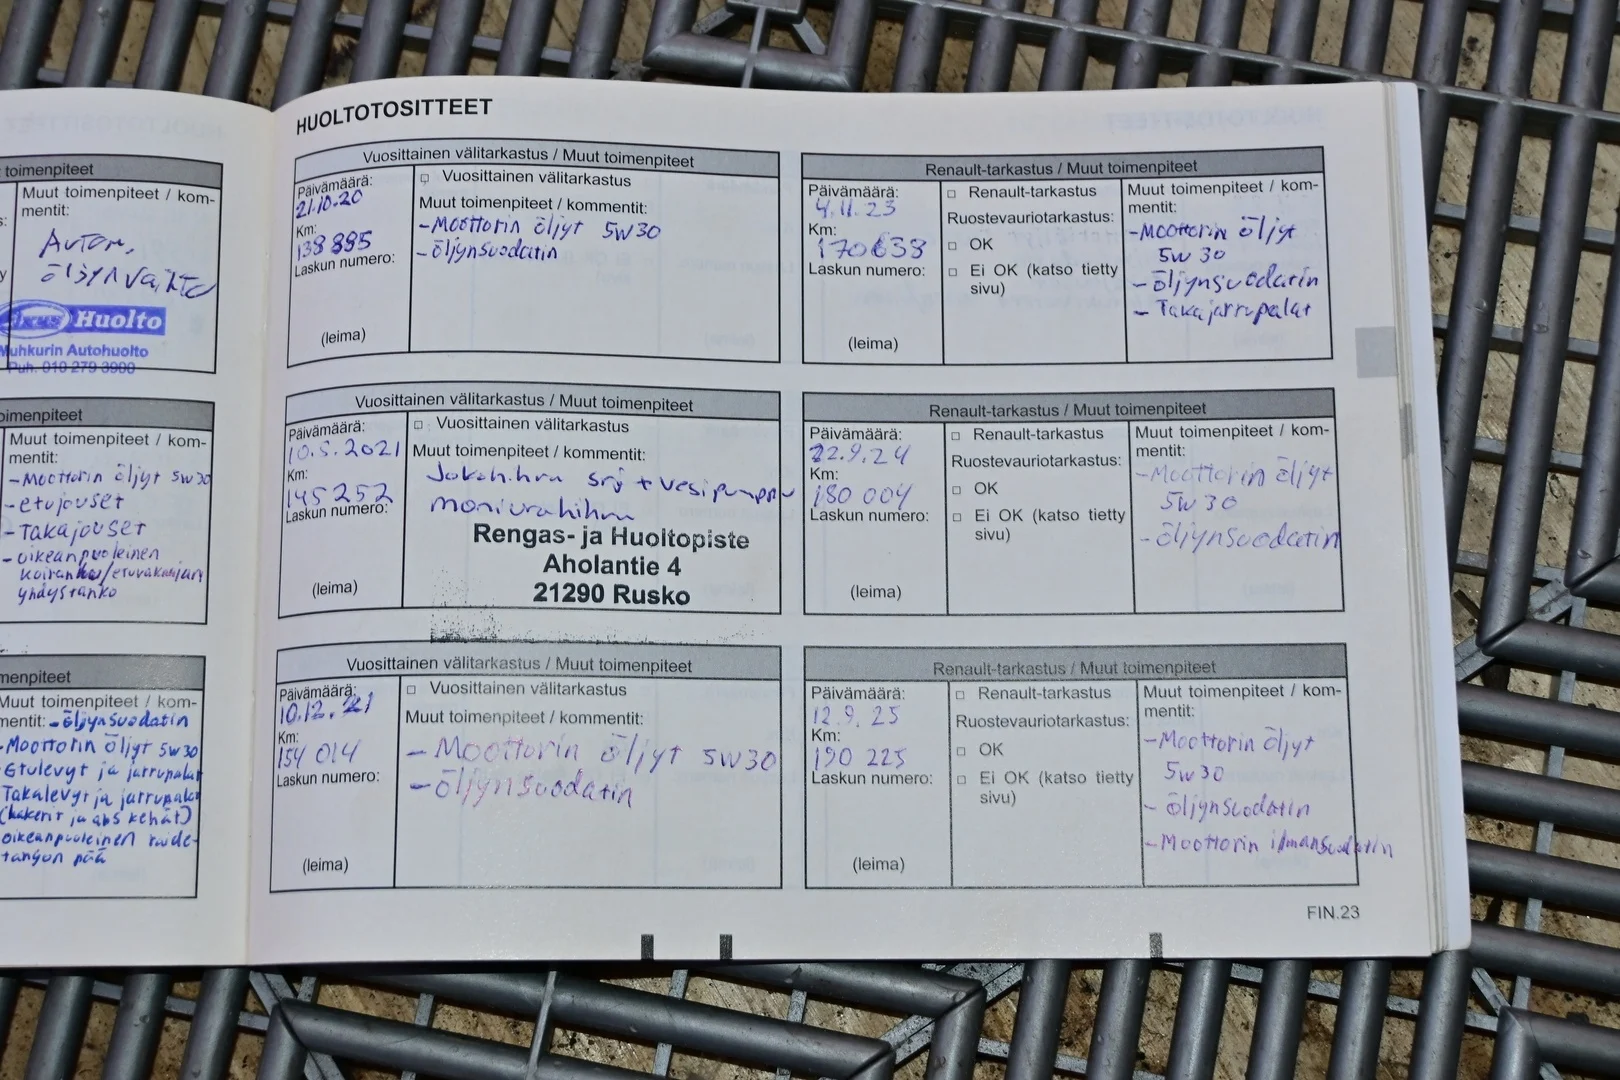 toimenpiteet
Muut toimenpiteet / kom-
mentit:
Autom.
öljynvaihto
Huolto
Muhkurin Autohuolto
Puh. 010 279 3900
oimenpiteet
Muut toimenpiteet / kom-
mentit:
-Moottorin öljyt 5w30
-etujouset
-Takajouset
-oikeanpuoleinen
yhdystanko
menpiteet
Muut toimenpiteet / kom-
mentit: -öljynsuodatin
-Moottorin öljyt 5w30
Etulevyt ja jarrupalat
Takalevyt ja jarrupalat
(laakerit ja abs kehät)
oikeanpuoleinen raide-
tangon pää
HUOLTOTOSITTEET
Vuosittainen välitarkastus / Muut toimenpiteet
Päivämäärä:
21.10.20
Km:
138 885
Laskun numero:
(leima)
Vuosittainen välitarkastus
Muut toimenpiteet / kommentit:
-Moottorin öljyt 5w30
-öljynsuodatin
Vuosittainen välitarkastus / Muut toimenpiteet
Päivämäärä:
10.5.2021
Km:
145252
Laskun numero:
(leima)
Vuosittainen välitarkastus
Muut toimenpiteet / kommentit:
Jakohihna srj + vesipumppu
moniurahihna
Rengas- ja Huoltopiste
Aholantie 4
21290 Rusko
Vuosittainen välitarkastus / Muut toimenpiteet
Päivämäärä:
10.12.21
Km:
154 014
Laskun numero:
(leima)
Vuosittainen välitarkastus
Muut toimenpiteet / kommentit:
-Moottorin öljyt 5w30
-öljynsuodatin
Renault-tarkastus / Muut toimenpiteet
Päivämäärä:
4.11.23
Km:
170638
Laskun numero:
(leima)
Renault-tarkastus
Ruostevauriotarkastus:
OK
Ei OK (katso tietty
sivu)
Muut toimenpiteet / kom-
mentit:
-Moottorin öljyt
5w30
-öljynsuodatin
-Takajarrupalat
Renault-tarkastus / Muut toimenpiteet
Päivämäärä:
22.9.24
Km:
180 004
Laskun numero:
(leima)
Renault-tarkastus
Ruostevauriotarkastus:
OK
Ei OK (katso tietty
sivu)
Muut toimenpiteet / kom-
mentit:
-Moottorin öljyt
5w30
-öljynsuodatin
Renault-tarkastus / Muut toimenpiteet
Päivämäärä:
12.9.25
Km:
190 225
Laskun numero:
(leima)
Renault-tarkastus
Ruostevauriotarkastus:
OK
Ei OK (katso tietty
sivu)
Muut toimenpiteet / kom-
mentit:
-Moottorin öljyt
5w30
-öljynsuodatin
-Moottorin ilmansuodatin
FIN.23